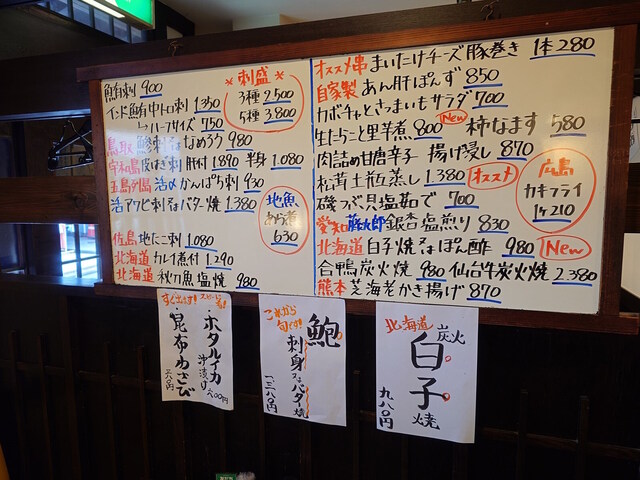 鮪刺 900
インド鮪中トロ刺 1350
ハーフサイズ 750
鳥取 鯵刺又はなめろう 980
宇和島 皮はぎ刺 肝付 1890 半身 1080
五島列島 活〆かんぱち刺 930
活アワビ刺又はバター焼 1380
佐島 地だこ刺 1080
北海道 カレイ煮付 1290
北海道 秋刀魚塩焼 980
*刺盛*
3種 2500
5種 3800
地魚
あら煮
630
オススメ串 まいたけチーズ豚巻き 1本 280
自家製 あん肝ぽんず 850
カボチャとさつまいもサラダ 700
生たらこと里芋煮 800 New 柿なます 580
肉詰め甘唐辛子 揚げ浸し 870
松茸土瓶蒸し 1380 オススメ
磯つぶ貝塩茹で 700
愛知 藤九郎 銀杏塩煎り 830
北海道 白子焼又はぽん酢 980 New
合鴨炭火焼 980 仙台牛炭火焼 2380
熊本 芝海老かき揚げ 870
広島
カキフライ
1ケ210
すぐ出ます!! スピード
・ホタルイカ
沖漬け 六〇〇円
・昆布わさび
これから
旬です!!
鮑
刺身
又は
バター焼
一三八〇円
北海道
炭火
白子焼
九八〇円